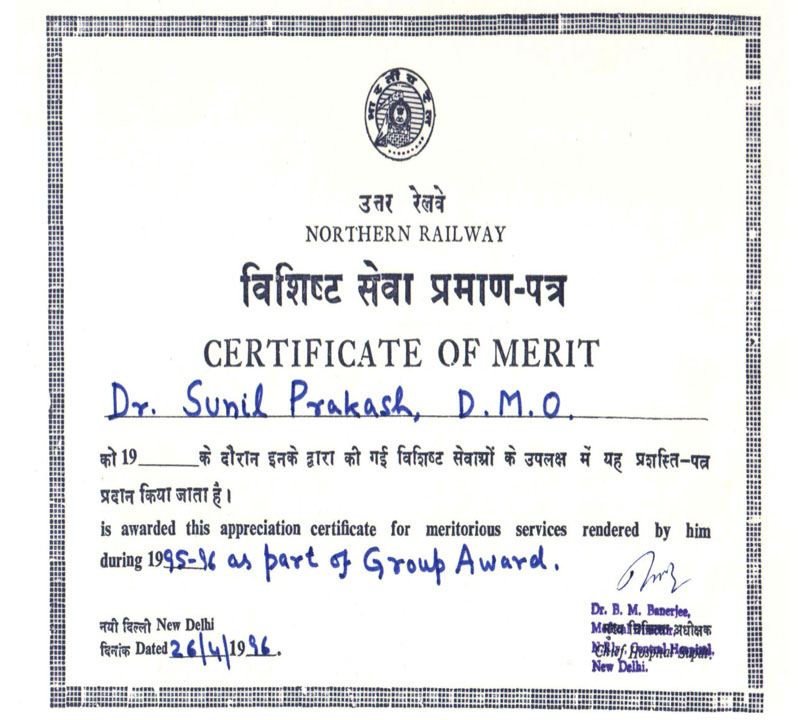 भारतीय रेल
उत्तर रेलवे
NORTHERN RAILWAY
विशिष्ट सेवा प्रमाण-पत्र
CERTIFICATE OF MERIT
Dr. Sunil Prakash, D.M.O.
को 19______के दौरान इनके द्वारा की गई विशिष्ट सेवाओं के उपलक्ष में यह प्रशस्ति-पत्र
प्रदान किया जाता है।
is awarded this appreciation certificate for meritorious services rendered by him
during 1995-96 as part of Group Award.
नयी दिल्ली New Delhi
दिनांक Dated 26/4/1996.
Dr. B. M. Banerjee,
Medical Director,
मुख्य चिकित्सा अधीक्षक
N. Rly. Central Hospital,
Chief Hospital Supdt.
New Delhi.